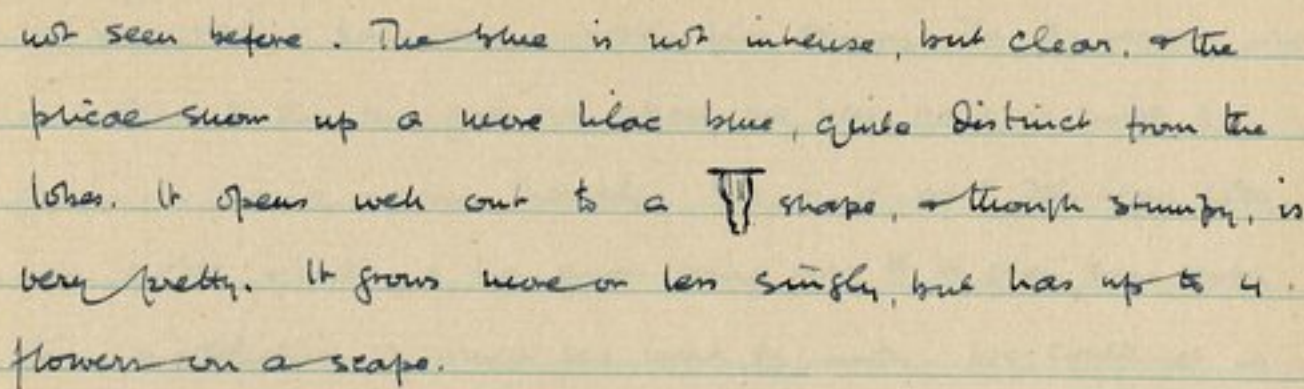 not seen before. The blue is not intense, but clear, & the
plicae show up a more lilac blue, quite distinct from the
lobes. It opens well out to a shape, & though stumpy, is
very pretty. It grows more or less singly, but has up to 4
flowers on a scape.